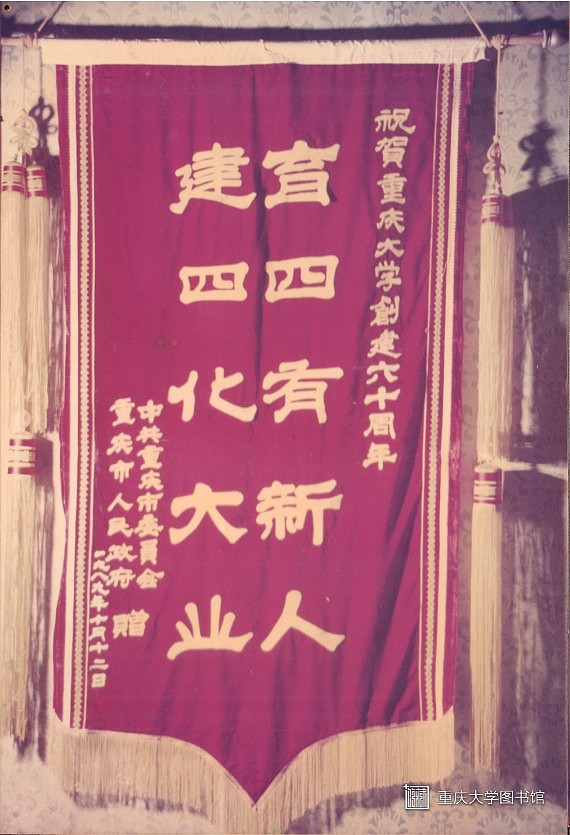 祝賀重庆大学創建六十周年
育四有新人
建四化大业
中共重庆市委員会
重庆市人民政府
贈
一九八九年十月十二日
重庆大学图书馆